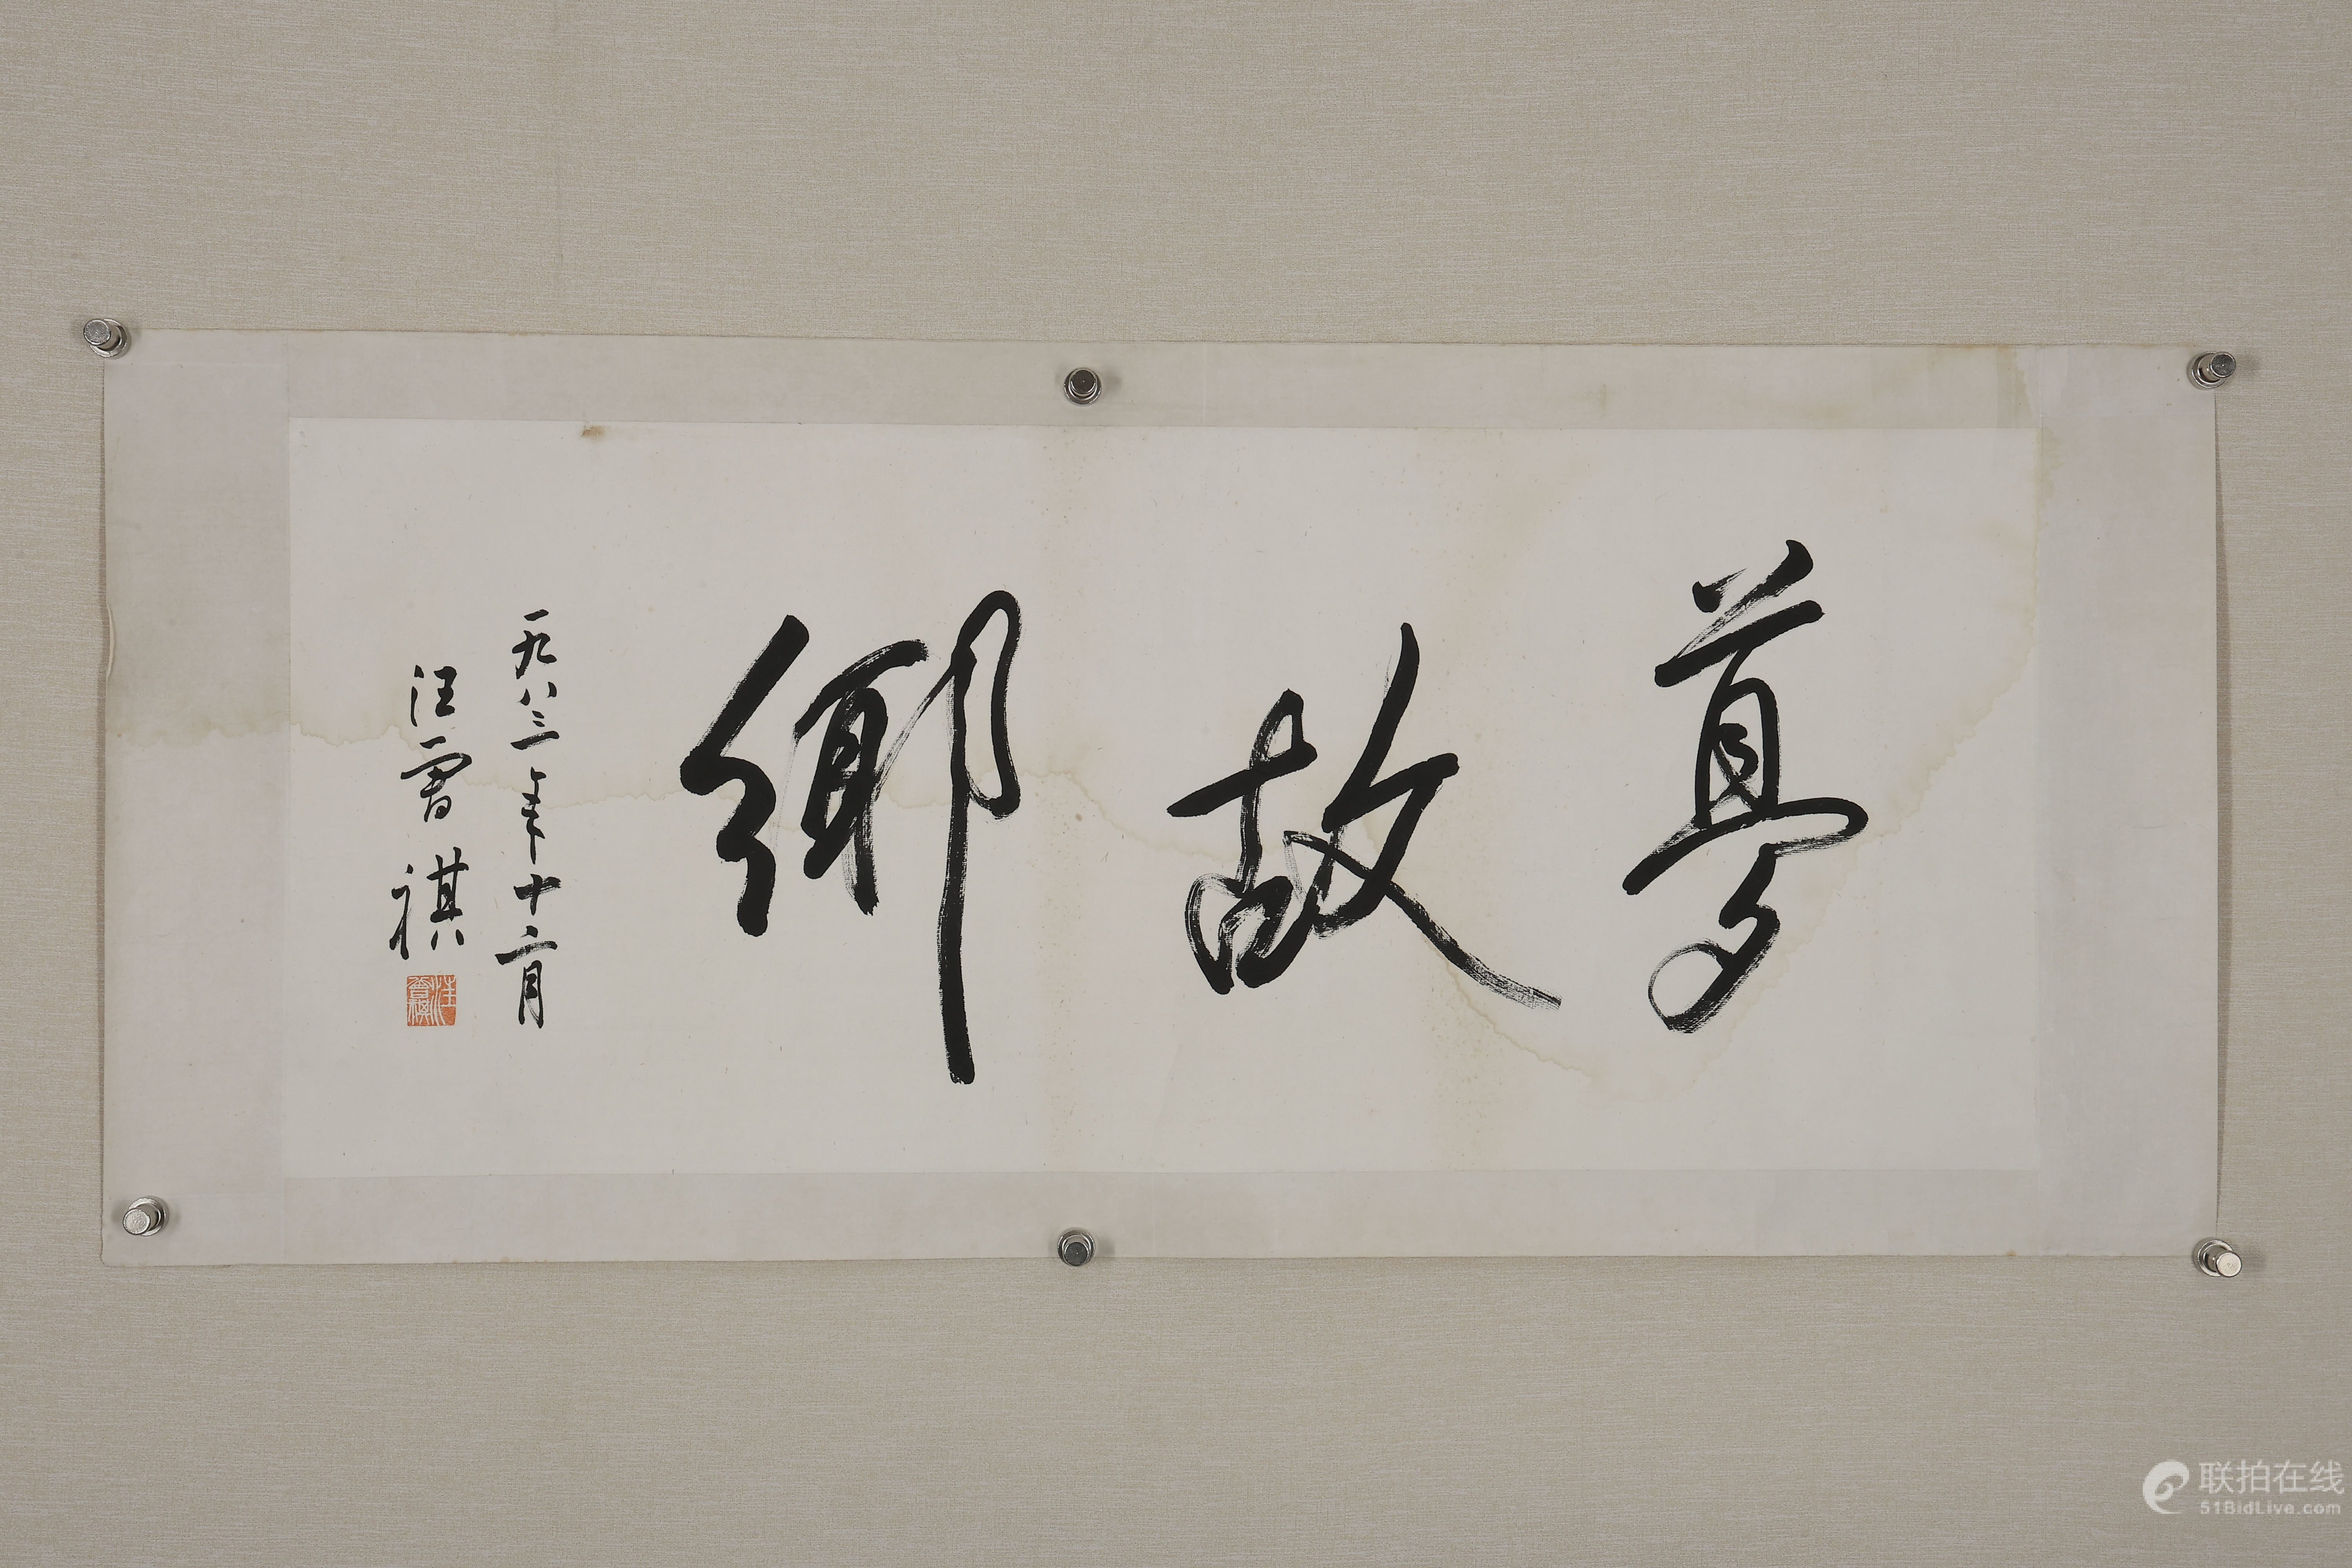 夢故鄉
一九八三年十二月
汪曾祺
汪曾祺
联拍在线
51BidLive.com